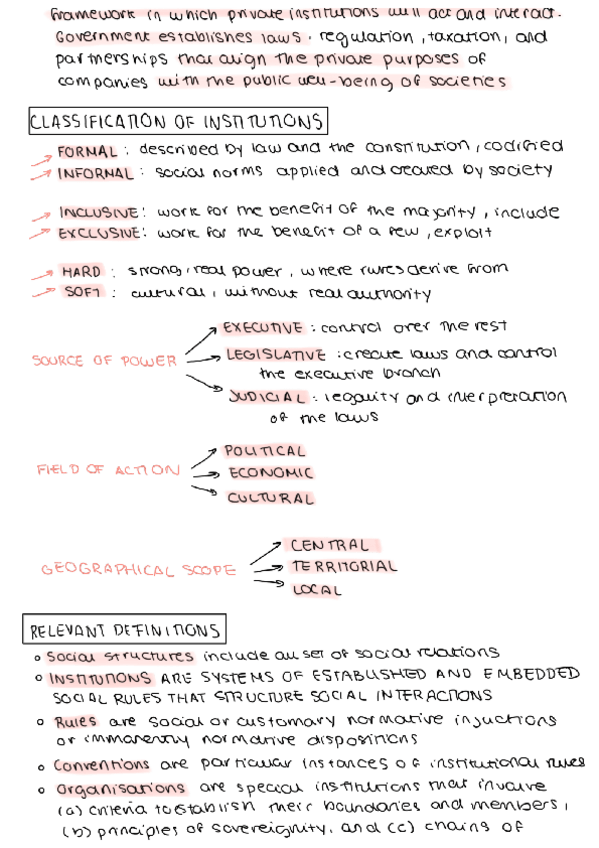 framework in which private institutions will act and interact.
Government establishes laws, regulation, taxation, and
partnerships that align the private purposes of
companies with the public well-being of societies
CLASSIFICATION OF INSTITUTIONS
FORMAL : described by law and the constitution, codified
INFORMAL : social norms applied and created by society
INCLUSIVE : work for the benefit of the majority, include
EXCLUSIVE : work for the benefit of a few, exploit
HARD : strong, real power, where rules derive from
SOFT : cultural, without real authority
EXECUTIVE : control over the rest
SOURCE OF POWER
LEGISLATIVE : create laws and control
the executive branch
JUDICIAL : legality and interpretation
of the laws
POLITICAL
FIELD OF ACTION
ECONOMIC
CULTURAL
CENTRAL
GEOGRAPHICAL SCOPE
TERRITORIAL
LOCAL
RELEVANT DEFINITIONS
Social structures include all set of social relations
INSTITUTIONS ARE SYSTEMS OF ESTABLISHED AND EMBEDDED
SOCIAL RULES THAT STRUCTURE SOCIAL INTERACTIONS
Rules are social or customary normative injuctions
or immanently normative dispositions
Conventions are particular instances of institutional rules
Organisations are special institutions that involve
(a) criteria to establish their boundaries and members,
(b) principles of sovereignity, and (c) chains of